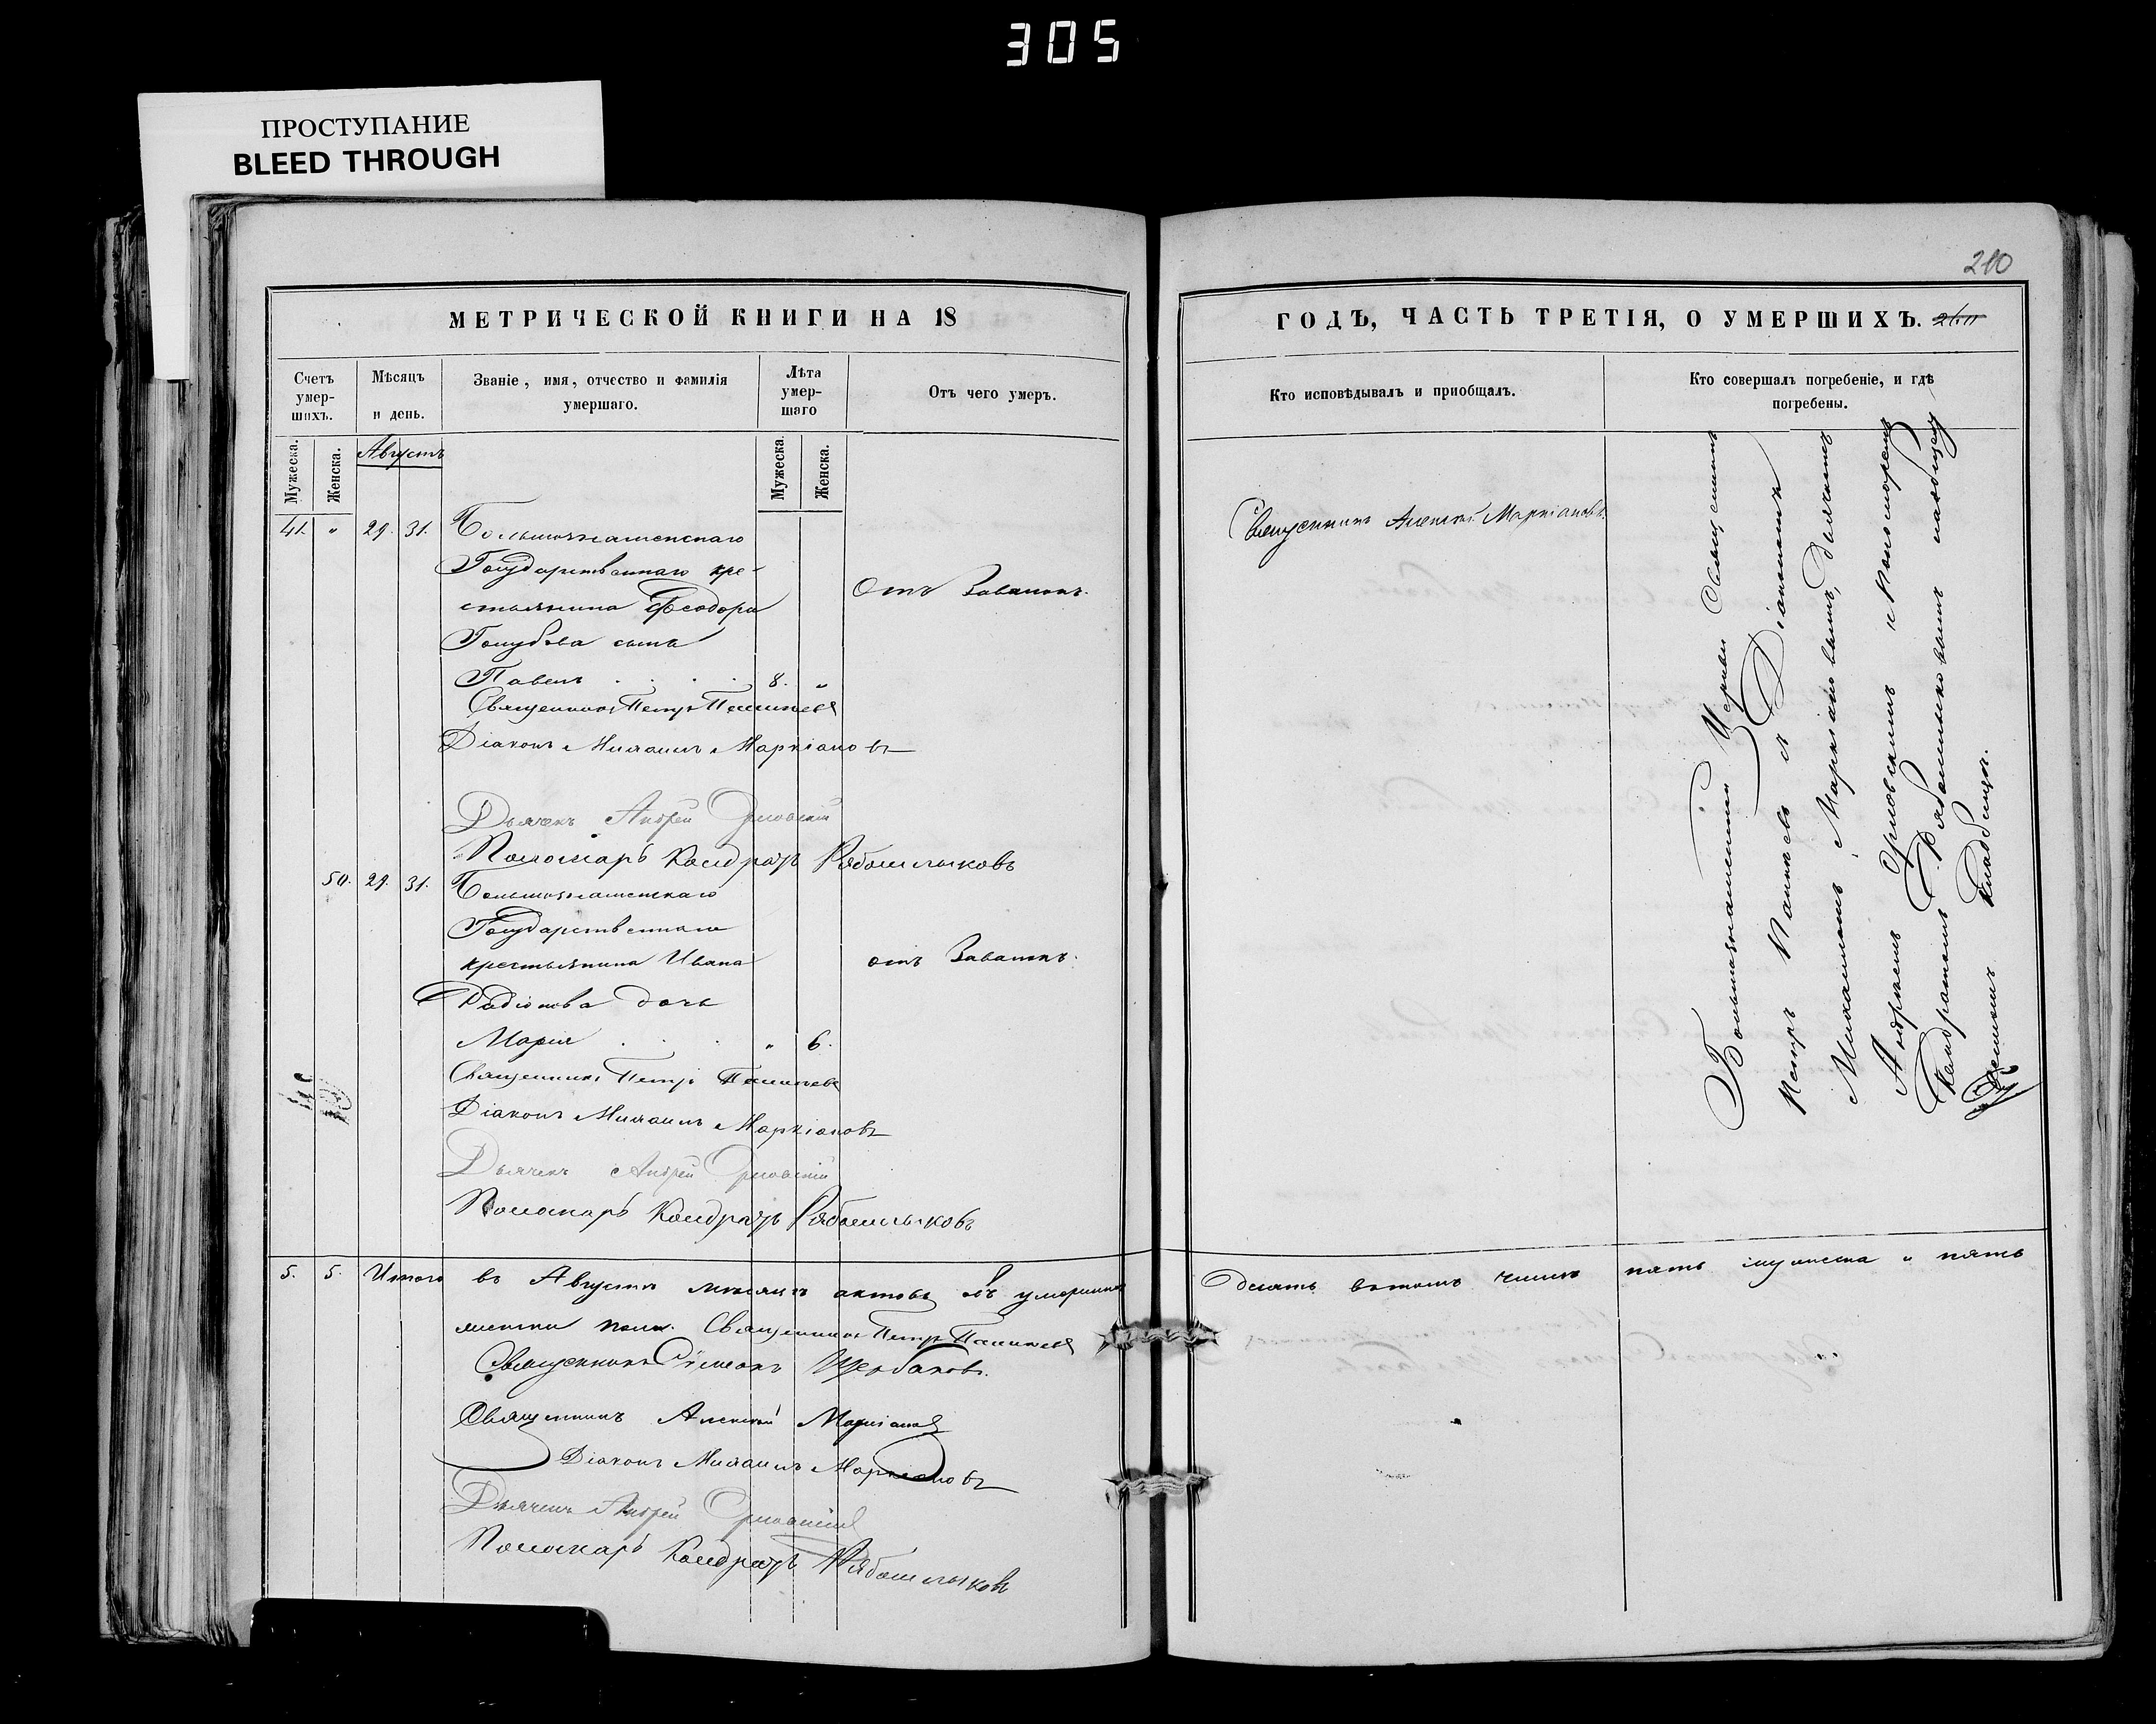 305
ПРОСТУПАНИЕ
BLEED THROUGH
210
МЕТРИЧЕСКОЙ КНИГИ НА 18
ГОДЪ, ЧАСТЬ ТРЕТІЯ, О УМЕРШИХЪ.
Счетъ умер-шихъ.
Мѣсяцъ и день.
Званіе, имя, отчество и фамилія умершаго.
Лѣта умер-шаго
Отъ чего умеръ.
Кто исповѣдывалъ и пріобщалъ.
Кто совершалъ погребеніе, и гдѣ погребены.
Мужеска.
Женска.
Августъ
Мужеска
Женска.
41. " 29. 31. Большезнаменскаго
Государственнаго кре-
стьянина Ѳеодора
Голубова сынъ
Павелъ 8. "
Отъ Завалокъ.
Священникъ Алексѣй Маркіановъ.
Священникъ Петръ
Діаконъ Михаилъ Маркіановъ
Дьячекъ Андрей Орловскій
Пономарь Кондратъ Рябошлыковъ
50. 29. 31. Большезнаменскаго
Государственнаго
крестьянина Ивана
дочь
Марія " 6.
отъ Завалокъ.
Священникъ Петръ
Діаконъ Михаилъ Маркіановъ
Дьячекъ Андрей Орловскій
Пономарь Кондратъ Рябошлыковъ
Большезнаменской Церкви Священникъ
Петръ съ Діакономъ
Михаиломъ Маркіановымъ, Дьячкомъ
Андреемъ Орловскимъ и Пономоремъ
Кондратомъ Рябошлыковымъ на общемъ
кладбищѣ.
5. 5. Итого въ Августѣ мѣсяцѣ актовъ объ умершихъ
Десять въ томъ числѣ пять мужеска и пять
женска пола. Священникъ Петръ
Священникъ Сѵмеонъ Щербаковъ.
Священникъ Алексѣй Маркіановъ
Діаконъ Михаилъ Маркіановъ
Дьячекъ Андрей Орловскій
Пономарь Кондратъ Рябошлыковъ